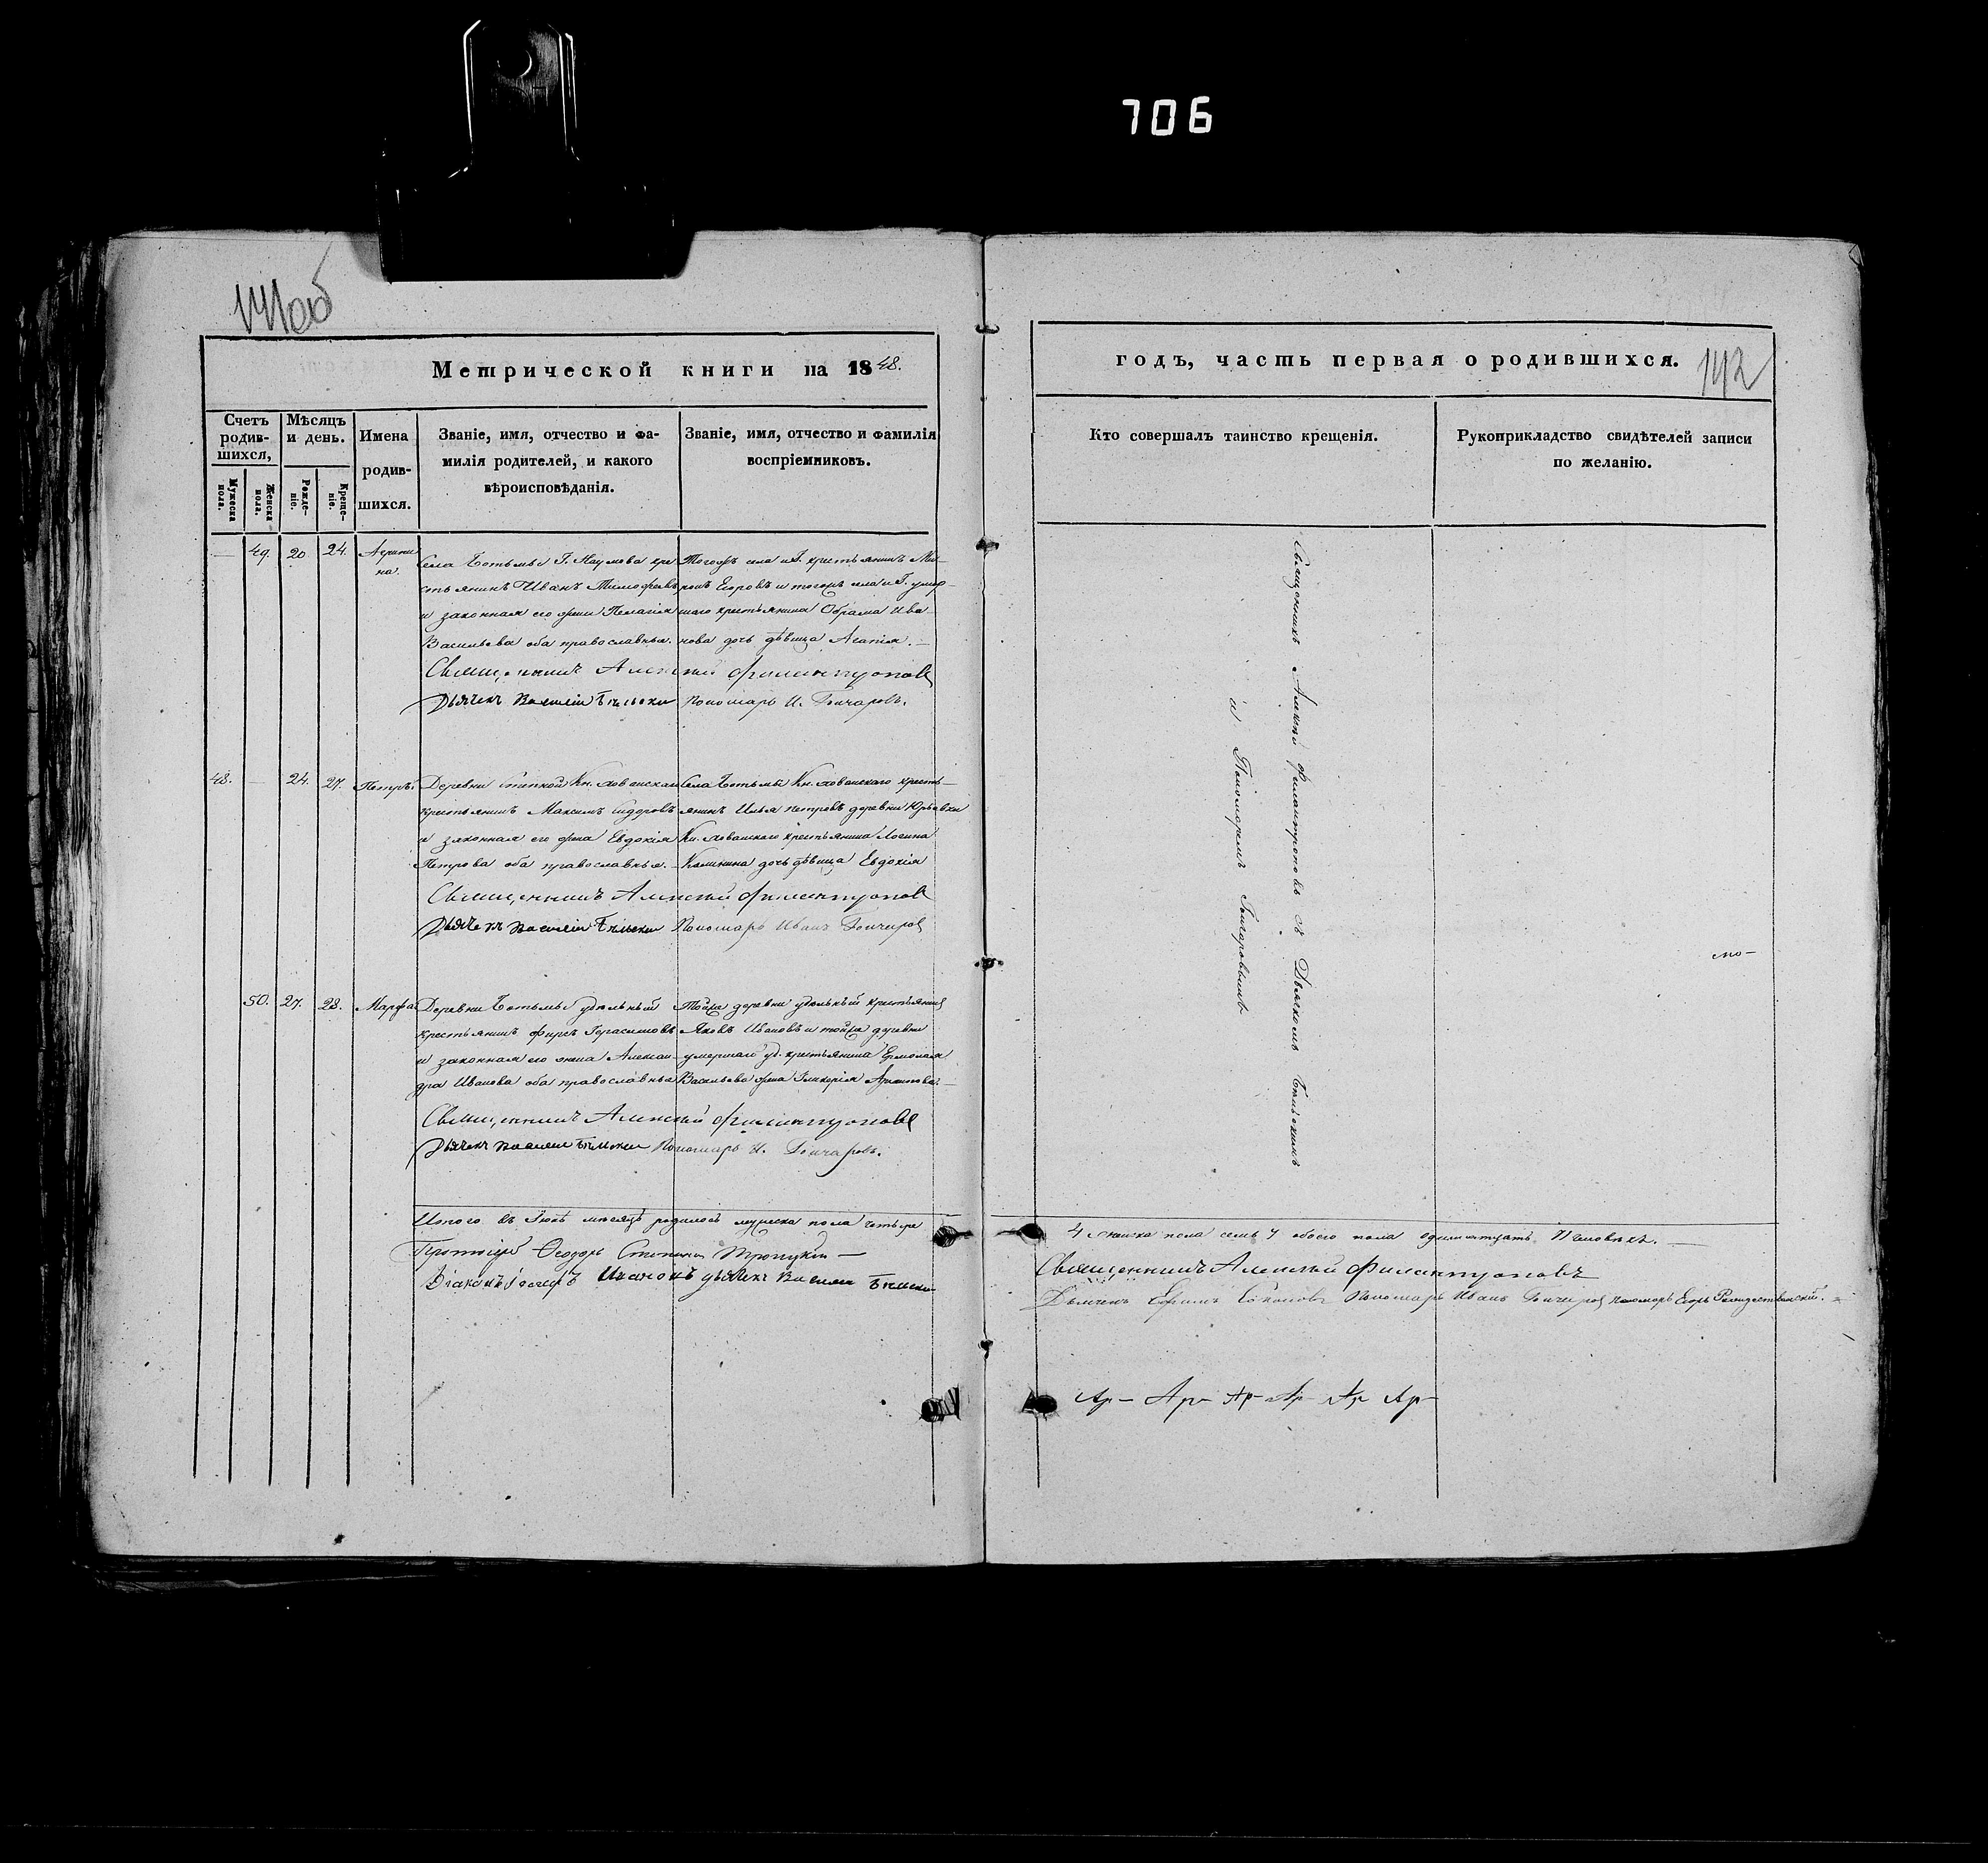 706
141об
Метрической книги на 1848.
Счетъ родив-
шихся,
Мужеска пола.
Женска пола.
Мѣсяцъ и день.
Рожде-
ніе.
Креще-
ніе.
Имена
родив-
шихся.
Званіе, имя, отчество и фа-
милія родителей, и какого
вѣроисповѣданія.
Званіе, имя, отчество и фамилія
воспріемниковъ.
— 49. 20 24.
Села Ботьмы Г. Наумова кре
стьянинъ Иванъ Тимофеевъ
и законная его жена Пелагія
Васильева оба православные.
Тогожъ села и Г. крестьянинъ Ми-
ронъ Егоровъ и тогожъ села и Г. умер-
шаго крестьянина Обрама Ива
нова дочь дѣвица Агапія. —
Священникъ Алексѣй Филантроповъ
Дьячекъ Василій Бѣльскій Пономарь И. Гончаровъ.
48. — 24. 27. Петръ.
Деревни Степной Кн. Хованскаго
крестьянинъ Максимъ Сидоровъ
и законная его жена Евдокія
Петрова оба православные. —
Села Ботьмы Кн. Хованскаго кресть-
янинъ Илья Петровъ деревни Юрьевки
Кн. Хованскаго крестьянина Логина
Калинина дочь дѣвица Евдокія
Священникъ Алексѣй Филантроповъ
Дьячекъ Василій Бѣльскій Пономарь Иванъ Гончаровъ
50. 27. 28. Марфа
Деревни Ботьмы удѣльный
крестьянинъ Фирсъ Герасимовъ
и законная его жена Алексан-
дра Иванова оба православные
Тойже деревни удѣльный крестьянинъ
Яковъ Ивановъ и тойже деревни
умершаго уд. крестьянина Ермолая
Васильева жена Гликерія
Священникъ Алексѣй Филантроповъ
Дьячекъ Василій Бѣльскій Пономарь И. Гончаровъ.
Итого въ Іюнѣ мѣсяцѣ родилось мужеска пола четыре
Протоіерей Ѳеодоръ Троицкій —
Діаконъ Іосифъ Ивановъ дьячекъ Василій Бѣльскій
годъ, часть первая о родившихся.
142
Кто совершалъ таинство крещенія.
Рукоприкладство свидѣтелей записи
по желанію.
Священникъ Алексѣй Филантроповъ съ Дьячкомъ Бѣльскимъ
и Пономаремъ Гончаровымъ
4 женска пола семь 7 обоего пола одиннатцать 11 человѣкъ. —
Священникъ Алексѣй Филантроповъ
Дьячекъ Ефимъ Соколовъ Пономарь Иванъ Гончаровъ пономарь Егоръ Рождественскій.
Ар- Ар- Ар- Ар- Ар Ар-